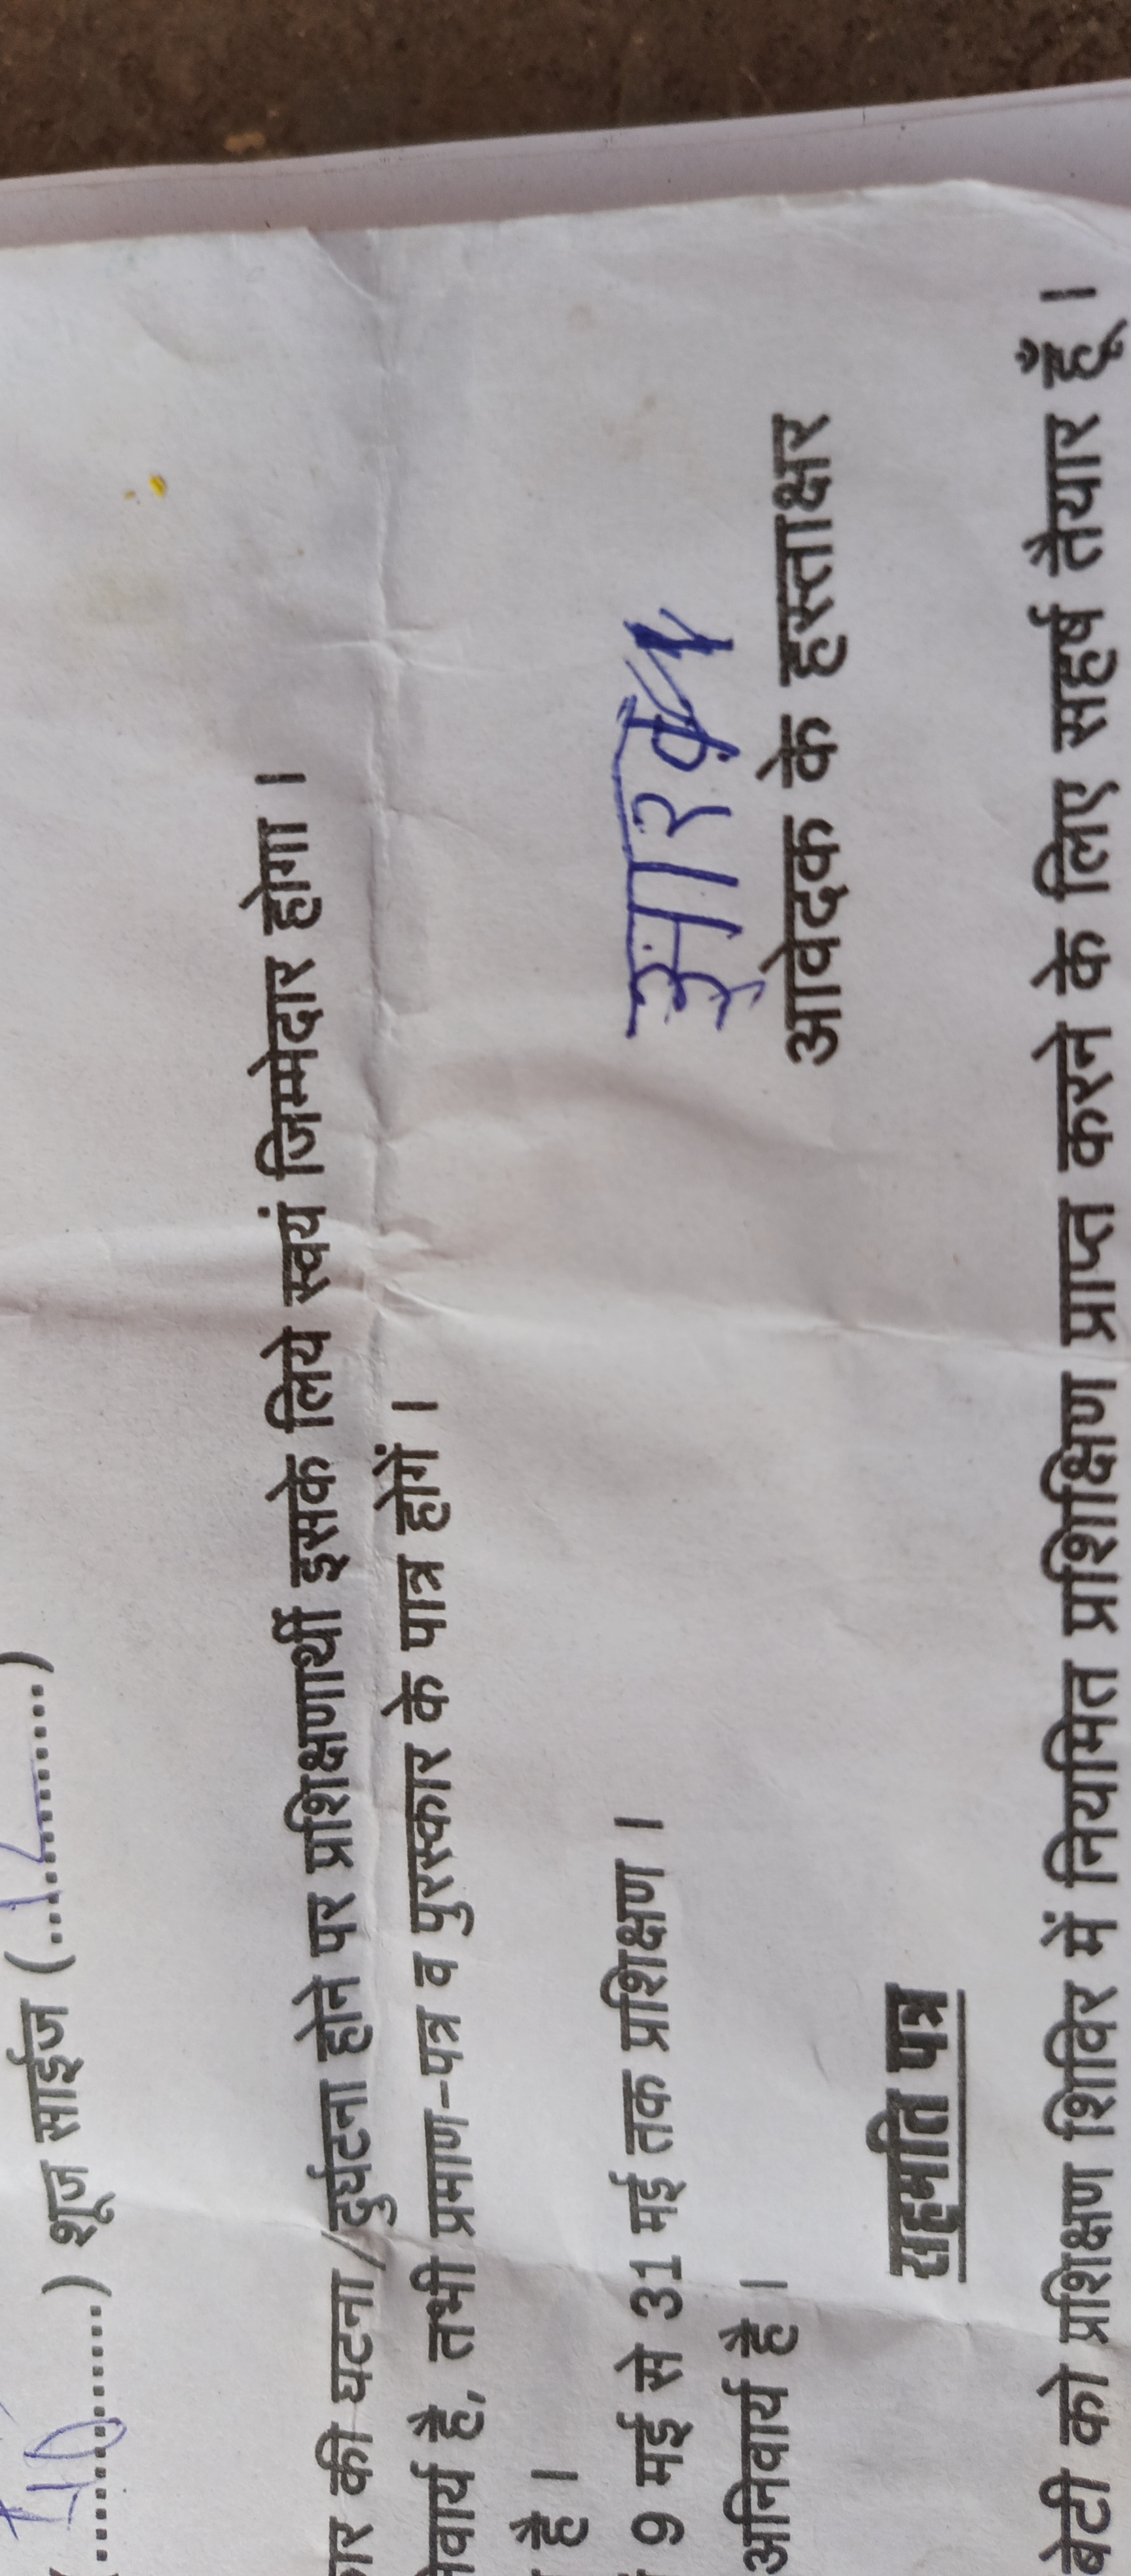 ..........) शूज साईज (..12..........)
की घटना/दुर्घटना होने पर प्रशिक्षणार्थी इसके लिये स्वयं जिम्मेदार होगा।
है, तभी प्रमाण-पत्र व पुरस्कार के पात्र होगें।
है।
9 मई से 31 मई तक प्रशिक्षण।
अनिवार्य है।
आवेदक के हस्ताक्षर
सहमति पत्र
बेटी को प्रशिक्षण शिविर में नियमित प्रशिक्षिण प्राप्त करने के लिए सहर्ष तैयार हूँ।